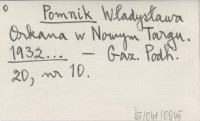 Pomnik Władysława
Orkana w Nowym Targu.
1932... — Gaz. Podh.
20, nr 10.